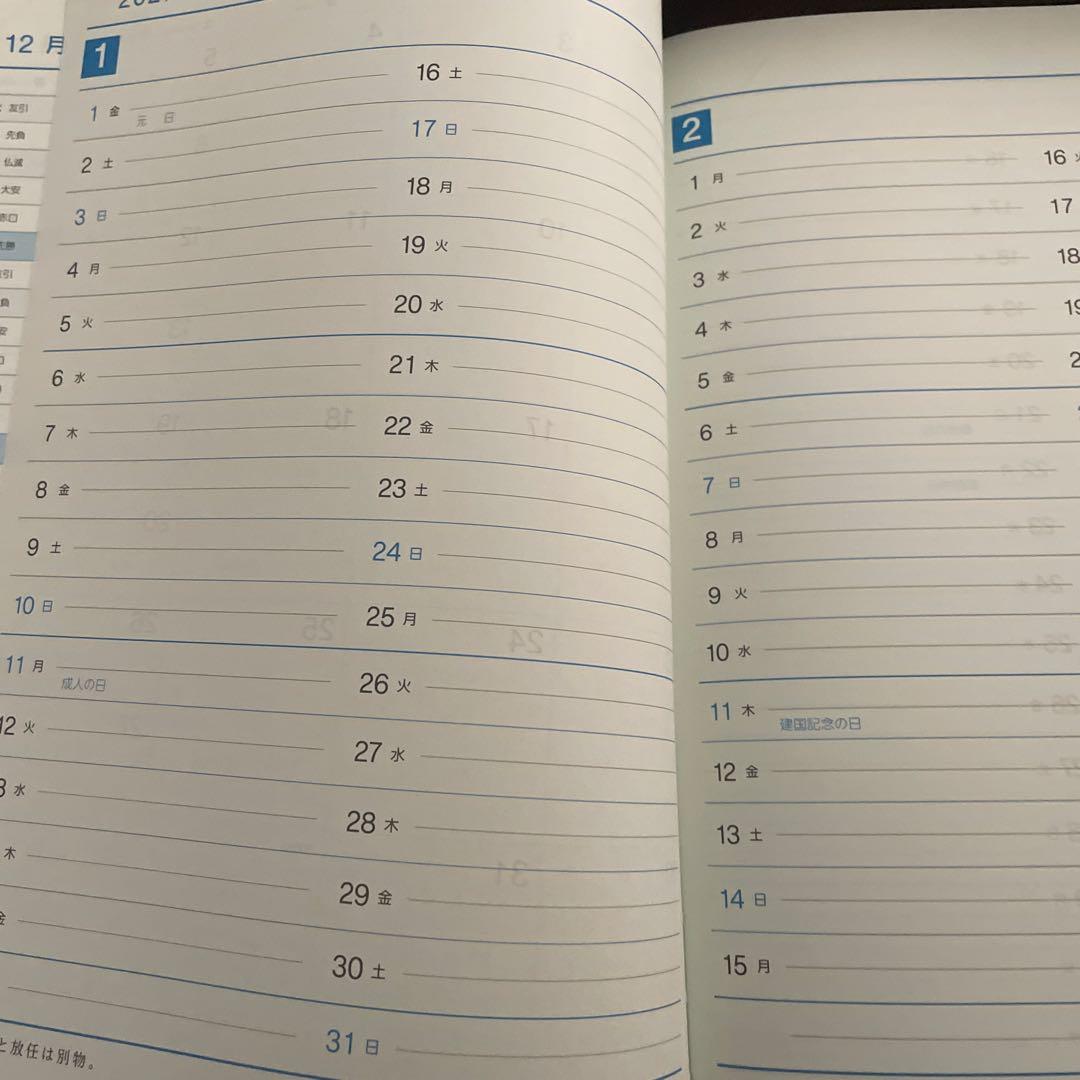 12 月
友引
先負
仏滅
大安
赤口
先勝
1
1 金
元 日
2 土
3 日
4 月
5 火
6 水
7 木
8 金
9 土
10 日
11 月
成人の日
12 火
水
木
金
16 土
17 日
18 月
19 火
20 水
21 木
22 金
23 土
24 日
25 月
26 火
27 水
28 木
29 金
30 土
31 日
と放任は別物。
2
1 月
2 火
3 水
4 木
5 金
6 土
7 日
8 月
9 火
10 水
11 木
建国記念の日
12 金
13 土
14 日
15 月
16
17
18